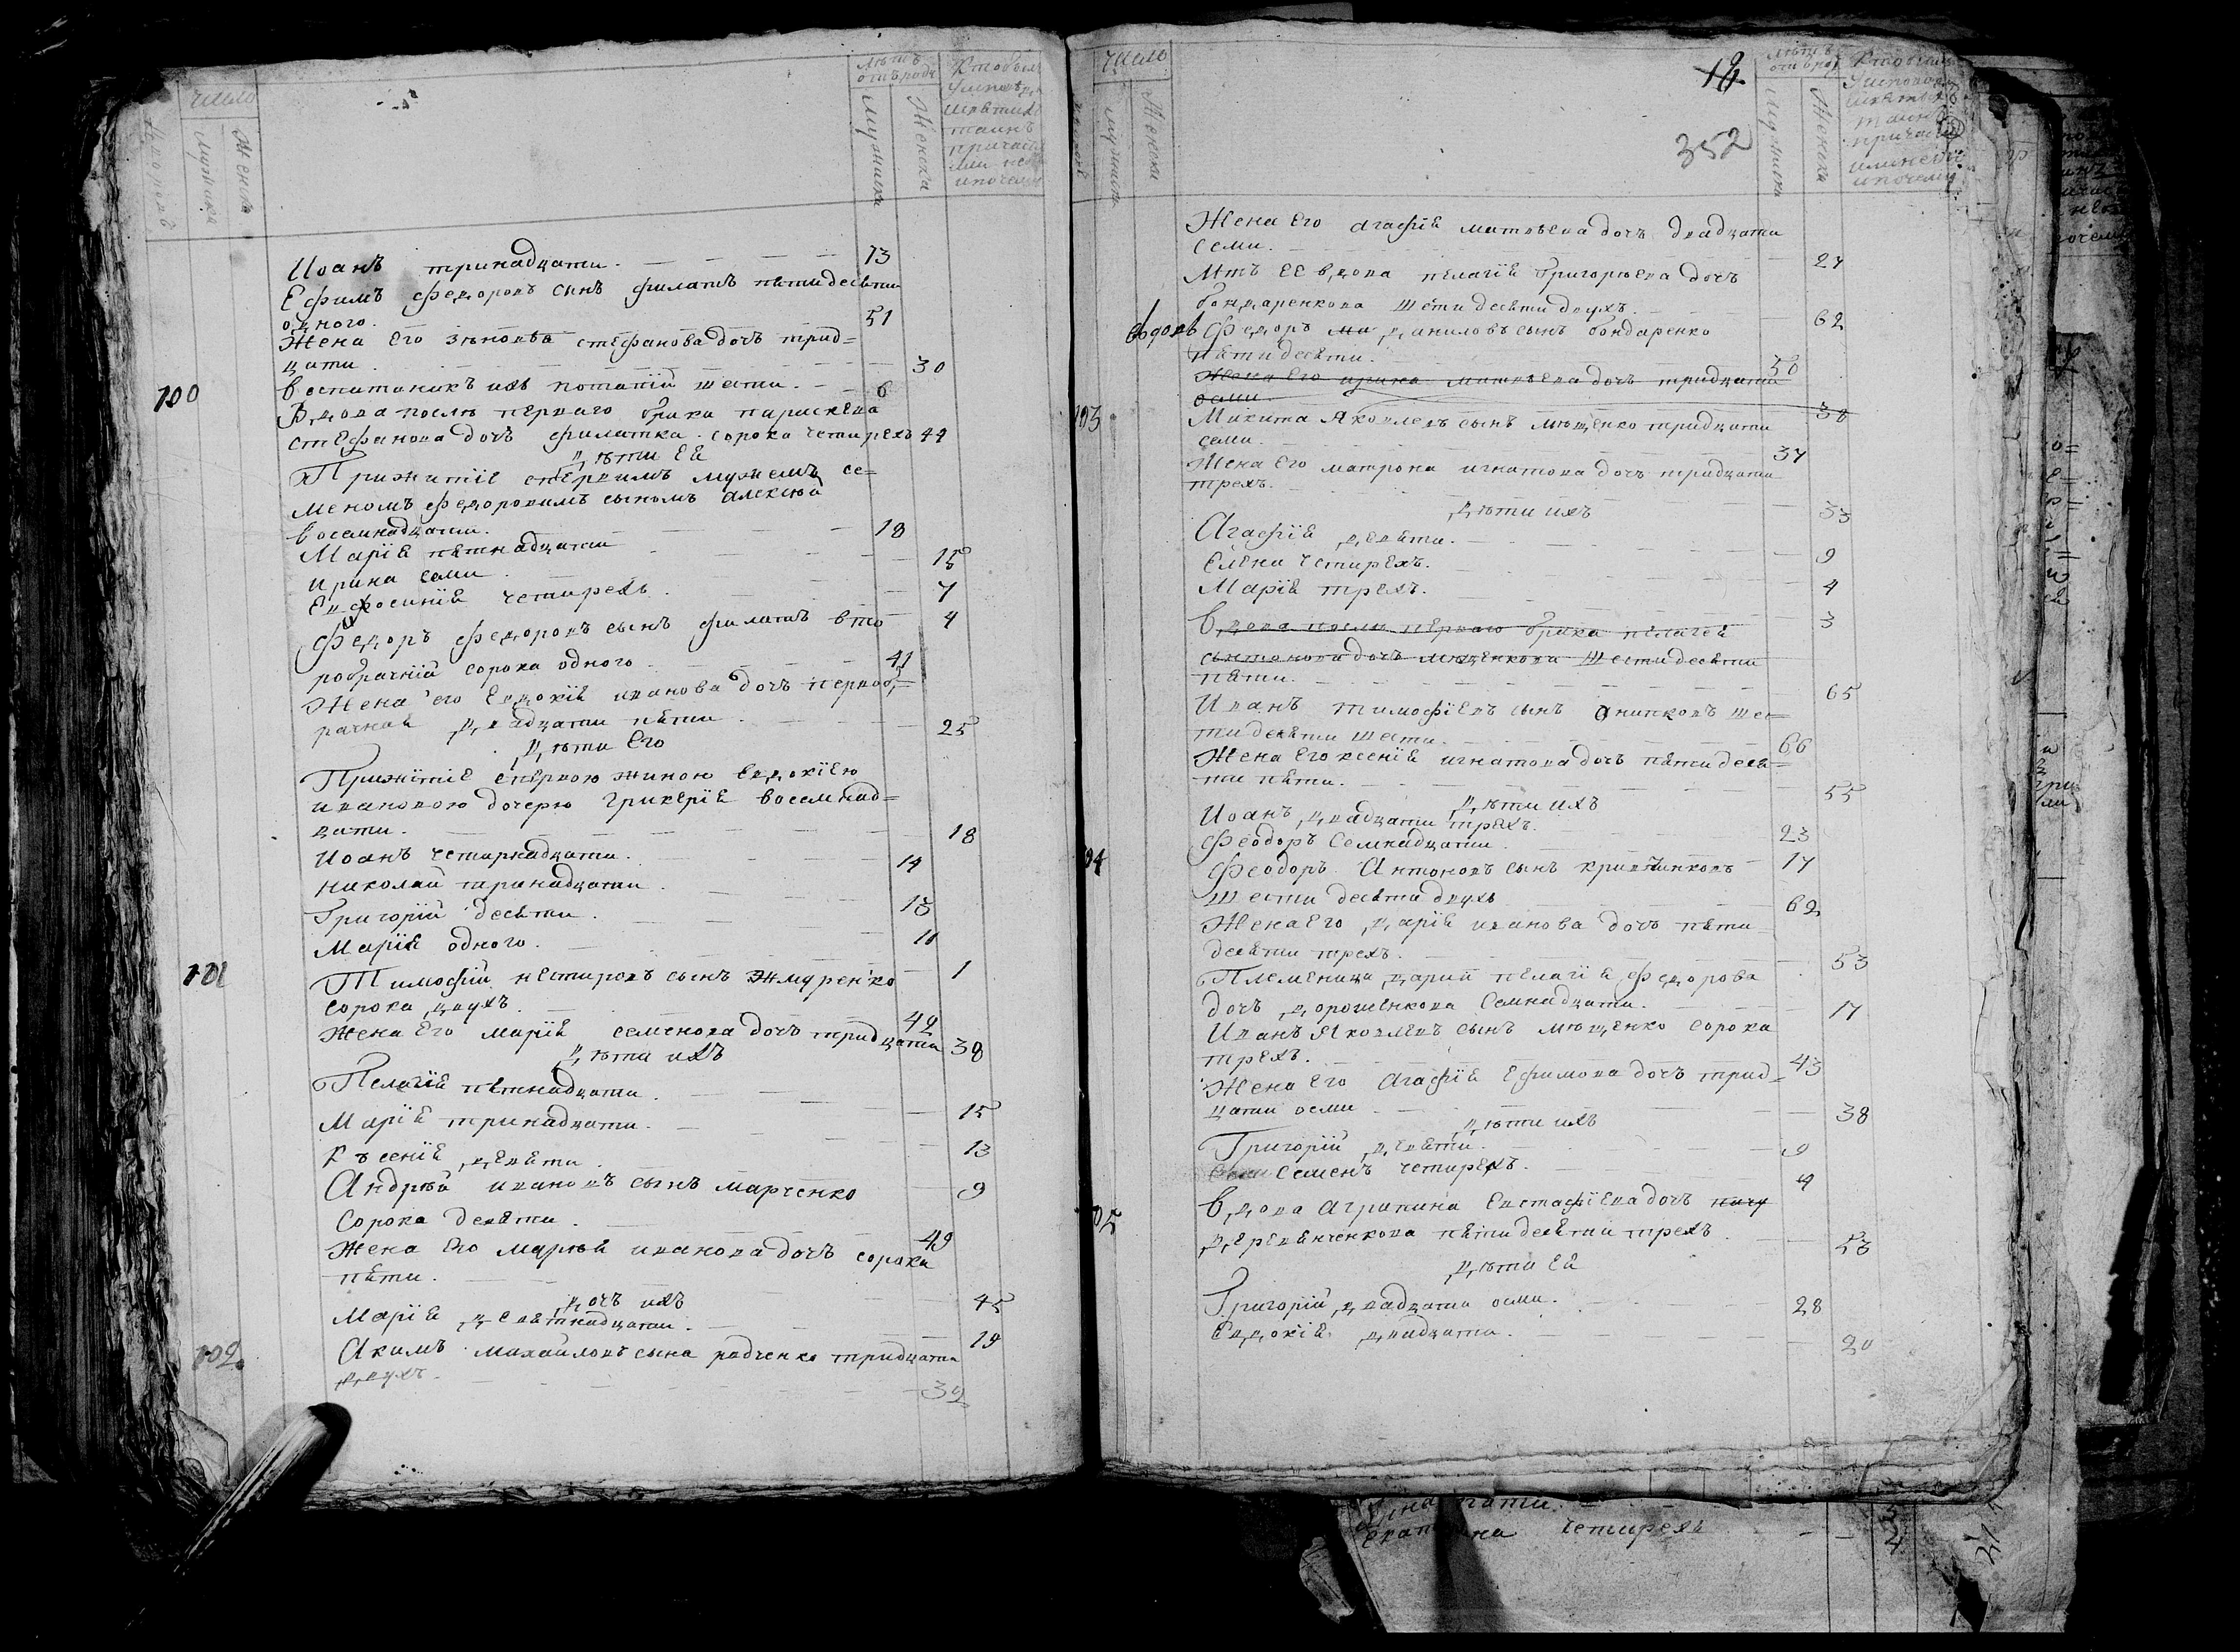 число
дворовъ
мужска
женска
лѣтъ
отъ рода
мужиска
Женска
Кто былъ
Иоанъ тринадцати. 13
Ефимъ Федоровъ сынъ филатъ пѣтидесѣти
одного. 51
Жена Его зѣновѣа стефанова дочъ трид=
цати 30
воспитаникъ ихъ потапiй шести. 6
100
Вдова послѣ перваго брака парискева
стефанова дочъ филатка. сорока четирехъ 44
дѣти Еѣ
Прижитiе сперьвимъ мужемъ се=
меномъ федоровимъ сыномъ алексѣй
восемнадцати. 18
Марiѣ пѣтнадцати 15
ирина семи. 7
Евфосинiѣ четирехъ. 4
Федоръ Федоровъ сынъ филатъ вто
робрачнiй сорока одного 41
Жена его Евдокiѣ иванова дочъ первоб=
рачнаѣ двадцати пѣти 25
дѣти Его
Прижiтiе сперьвою жиною Евдокiею
ивановою дочерю Гликерiѣ восемнад=
цати. 18
Иоанъ четирнадцати. 14
николай тринадцати. 13
Григорiй десѣти. 10
Марiѣ одного. 1
101
Тимофiй нестировъ сынъ жмуренко
сорока двухъ. 42
Жена Его марiѣ семенова дочъ тридцати 38
дѣти ихъ
Пелагiѣ пѣтнадцати. 15
Марiѣ тринадцати. 13
Къ сенiѣ девѣти 9
Андрѣй ивановъ сынъ марченко
Сорока девѣти. 49
Жена Его марѣѣ иванова дочъ сорока
пѣти. 45
дочъ ихъ
Марiѣ девѣтнадцати. 19
102.
Акимъ михайловъ сына радченко тридцати
двухъ. 32
число
мужиска
Женска
352
лѣтъ
отъ рода
мужиска
Женска
Жена Его агафiѣ матвѣева дочъ двадцати
семи. 27
Мть ЕЕ вдова пелагiѣ Григорьева дочъ
бондаренкова шестидесѣти двухъ. 62
вдовъ Федоръ ма даниловъ сынъ бондаренко
пѣтидесѣти. 50
Жена Его ирина матвѣева дочъ тридцати
осми. 38
103
Микита Яковлевъ сынъ мѣщенко тридцати
семи. 37
Жена Его матрона игнатова дочъ тридцати
трехъ. 33
дѣти ихъ
Агафiѣ девѣти. 9
Елена четирехъ. 4
Марiѣ трехъ. 3
Вдова послѣ перваго брака пелагеѣ
антонова дочъ мѣщенкова шестидесѣти
пѣти. 65
Иванъ тимофiевъ сынъ онипковъ шес=
тидесѣти шести. 66
Жена Его ксенiѣ игнатова дочъ пѣтидесѣ=
ти пѣти. 55
дѣти ихъ
Иоанъ двадцати трехъ. 23
Феодоръ Семнадцати. 17
104
Феодоръ Антоновъ сынъ кривчинковъ
шестидесѣти двухъ 62
Жена Его дарiѣ иванова дочъ пѣти
десѣти трехъ. 53
Племеница дарии пелагiѣ Федорова
дочъ дорошенкова Семнадцати. 17
Иванъ Яковлевъ сынъ мѣщенко сорока
трехъ. 43
Жена Его Агафiѣ Ефимова дочъ трид=
цати осми 38
дѣти ихъ
Григорiй девѣти. 9
Семенъ четирехъ. 4
105
Вдова агрипина Евстафiева дочъ
деревѣнченкова пѣтидесѣти трехъ. 53
дѣти Еѣ
Григорiй двадцати осми. 28
Евдокiѣ двадцати. 20
четирехъ 4